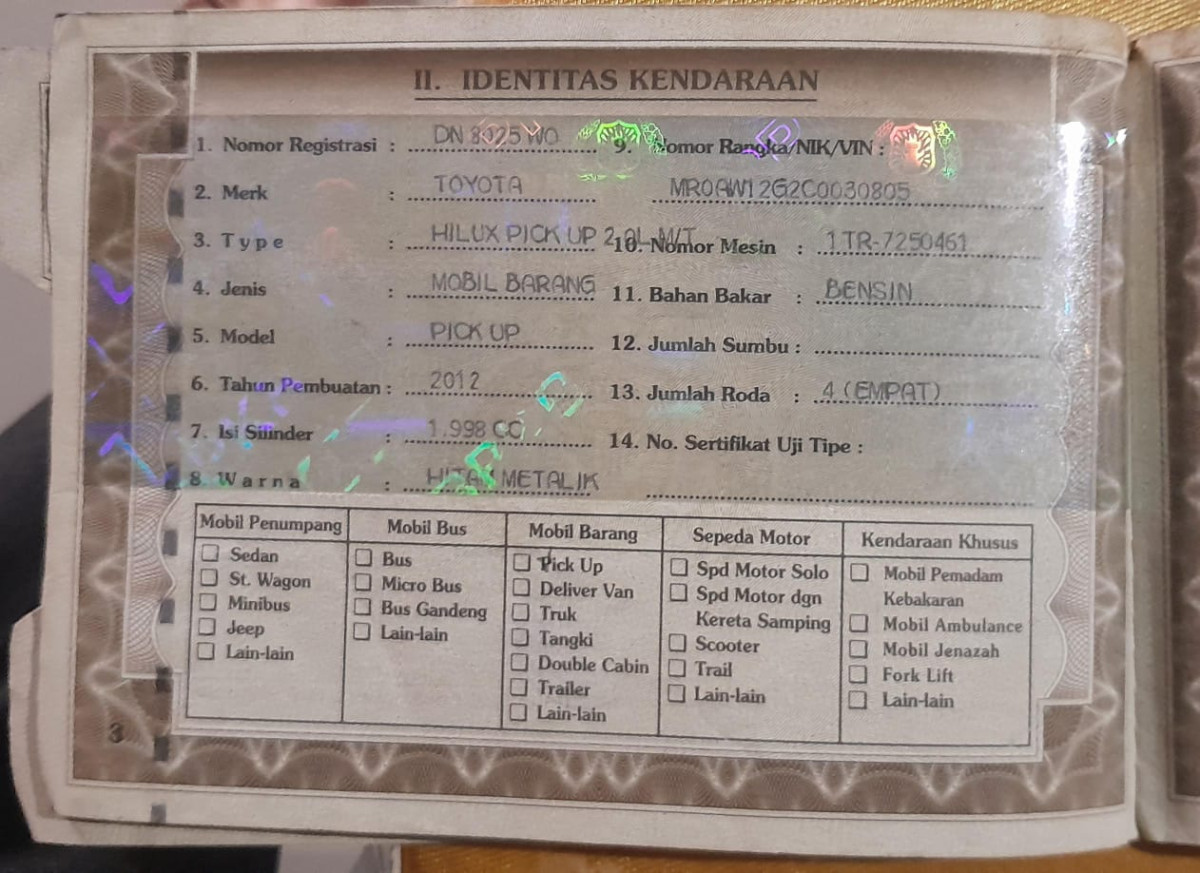 II. IDENTITAS KENDARAAN
1. Nomor Registrasi : DN 8025 WO
2. Merk : TOYOTA
3. Type : HILUX PICK UP 2.0L M/T
4. Jenis : MOBIL BARANG
5. Model : PICK UP
6. Tahun Pembuatan : 2012
7. Isi Silinder : 1.998 CC
8. Warna : HITAM METALIK
9. Nomor Rangka/NIK/VIN :
MR0AW12G2C0030805
10. Nomor Mesin : 1TR-7250461
11. Bahan Bakar : BENSIN
12. Jumlah Sumbu :
13. Jumlah Roda : 4 (EMPAT)
14. No. Sertifikat Uji Tipe :
Mobil Penumpang
Sedan
St. Wagon
Minibus
Jeep
Lain-lain
Mobil Bus
Bus
Micro Bus
Bus Gandeng
Lain-lain
Mobil Barang
Pick Up
Deliver Van
Truk
Tangki
Double Cabin
Trailer
Lain-lain
Sepeda Motor
Spd Motor Solo
Spd Motor dgn
Kereta Samping
Scooter
Trail
Lain-lain
Kendaraan Khusus
Mobil Pemadam
Kebakaran
Mobil Ambulance
Mobil Jenazah
Fork Lift
Lain-lain
3